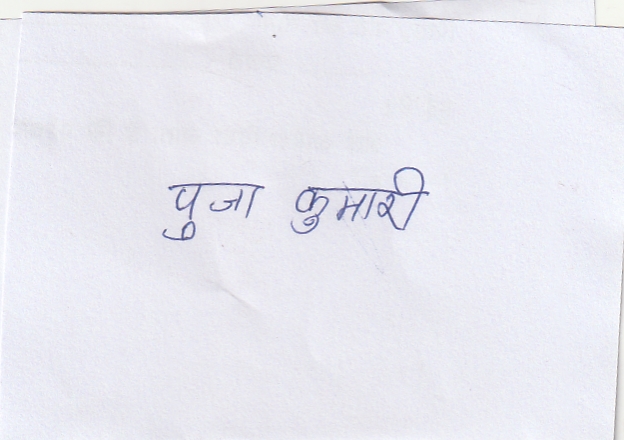 पुजा कुमारी